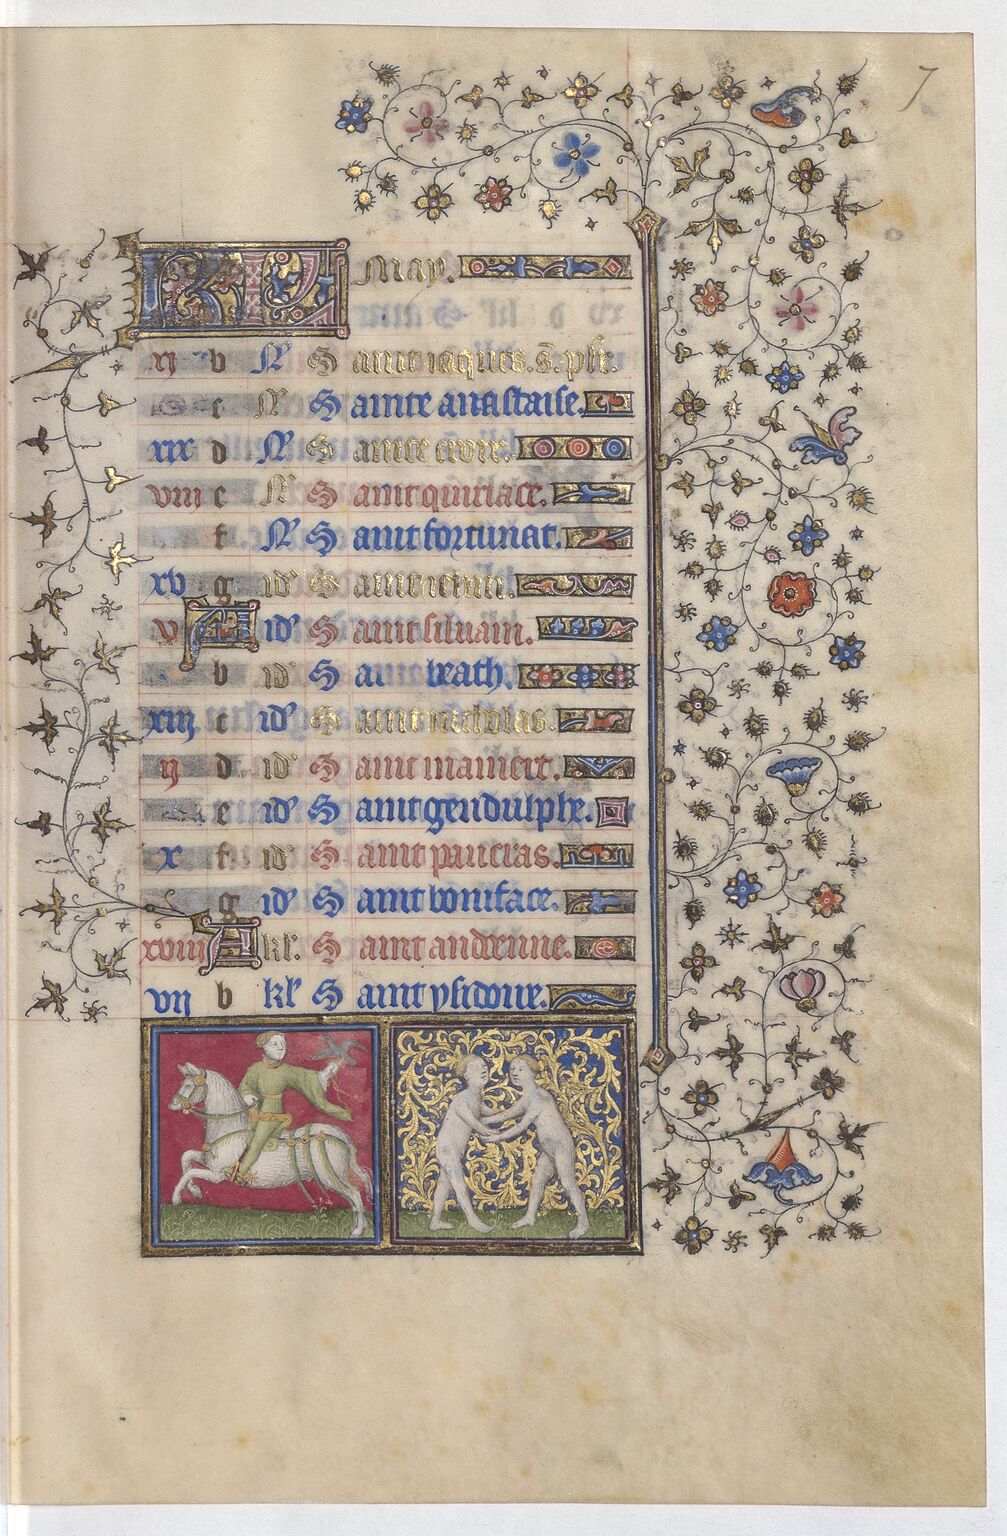 7
KL May.
xi b N Saint iaques. s. ph.
c N Sainte anastaise.
xix d N Sainte croix.
viii e N Saint quiriace.
f N Saint fortunat.
xv g id' Saint
v A id' Saint siluain.
b id' Sai beath.
xiii c id' Saint nicholas.
ii d id' Saint mamert.
e id' Saint gendulphe.
x f id' Saint pancras.
g id' Saint boniface.
xviii A kl. Saint andrenne.
vii b kl' Saint ysidoire.